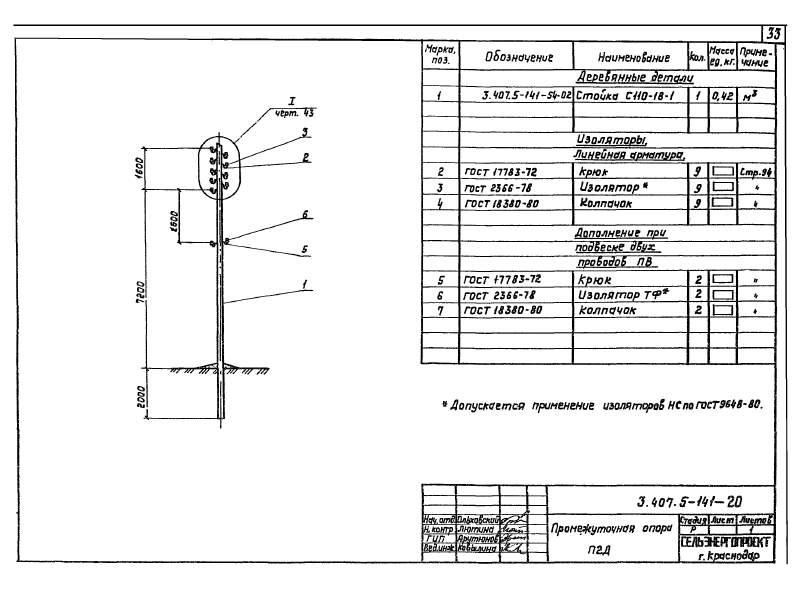 33
Марка, поз. Обозначение Наименование Кол. Масса ед, кг. Примечание
Деревянные детали
1 3.407.5-141-54-02 Стойка С110-18-1 1 0,42 м³
Изоляторы,
Линейная арматура,
2 ГОСТ 17783-72 Крюк 9 Стр.94
3 ГОСТ 2366-78 Изолятор* 9 "
4 ГОСТ 18380-80 Колпачок 9 "
Дополнение при
подвеске двух
проводов ПВ
5 ГОСТ 17783-72 Крюк 2 "
6 ГОСТ 2366-78 Изолятор ТФ* 2 "
7 ГОСТ 18380-80 Колпачок 2 "
I
черт. 43
3
2
6
5
1
1600
1600
7200
2000
* Допускается применение изоляторов НС по ГОСТ 9648-80.
3.407.5-141-20
Нач. отд. Ольховский
Н. контр Лютина
ГИП Арутюнов
Вед.инж Ковылина
Промежуточная опора
П2Д
Стадия Лист Листов
Р 1
СЕЛЬЭНЕРГОПРОЕКТ
г. Краснодар